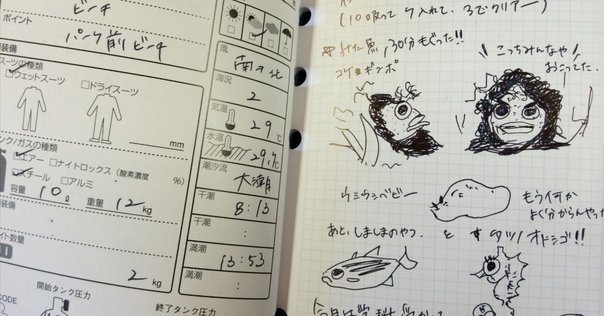 ビーチ
ポイント
パーク前ビーチ
装備
スーツの種類
ウェットスーツ
ドライスーツ
mm
ンク/ガスの種類
エアー
ナイトロックス(酸素濃度 %)
スチール
アルミ
容量 10ℓ 重量 12kg
装備
イト数量
2 kg
開始タンク圧力
終了タンク圧力
CODE
風
南→北
海況
2
気温
29℃
水温
29.9℃
潮汐流
大潮
干潮
8:13
干潮
:
満潮
13:53
満潮
:
(100
クリアー)
みた魚,30分もぐった!!
コケギンポ
こっちみんなや
おこってた.
ウミウシベビー
もう
よく分からんやつ
あと、しましまのやつ.
と
タツノオトシゴ!!
今日は学科